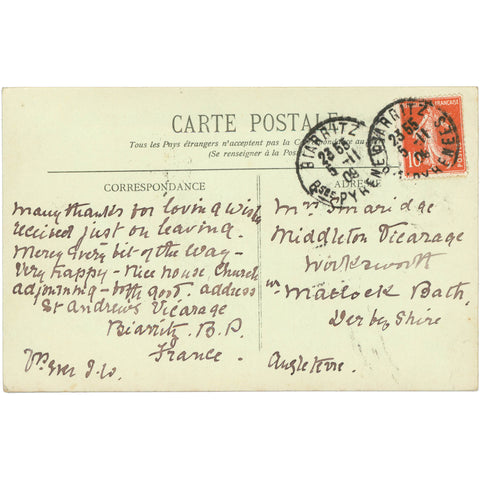 CARTE POSTALE
Tous les Pays étrangers n'acceptent pas la Correspondance au
(Se renseigner à la Poste
CORRESPONDANCE
ADRESSE
Many thanks for loving wishes
received just on leaving.
Mercy every bit of the way -
Very happy - nice house Church
adjoining - address
St Andrews Vicarage
Biarritz. B.P.
France.
Yrs ever
Mrs
Middleton Vicarage
Wirksworth
nr Matlock Bath
Derbyshire
Angleterre.
BIARRITZ
23 55
5-11
09
BSES PYRENEES
BIARRITZ
23 55
5-11
PYRENEES
FRANÇAISE
10